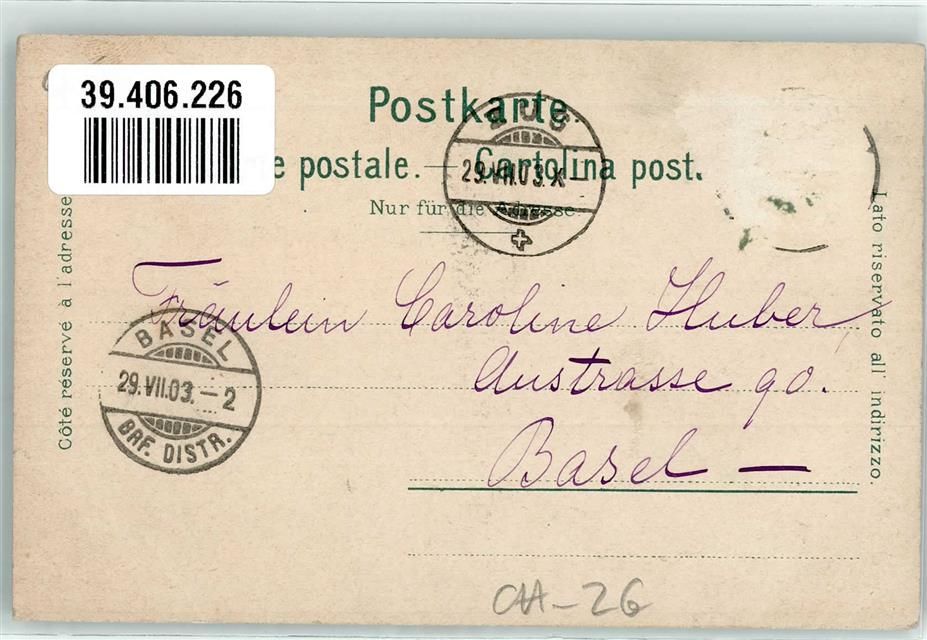 39.406.226
Postkarte.
e postale. — Cartolina post.
Nur für die Adresse
ZUG
29.VII.03.X–
Côté réservé à l'adresse
Lato riservato all' indirizzo.
Fräulein Caroline Huber,
Austrasse 90.
Basel —
BASEL
29.VII.03.–2
BRF. DISTR.
CH-26